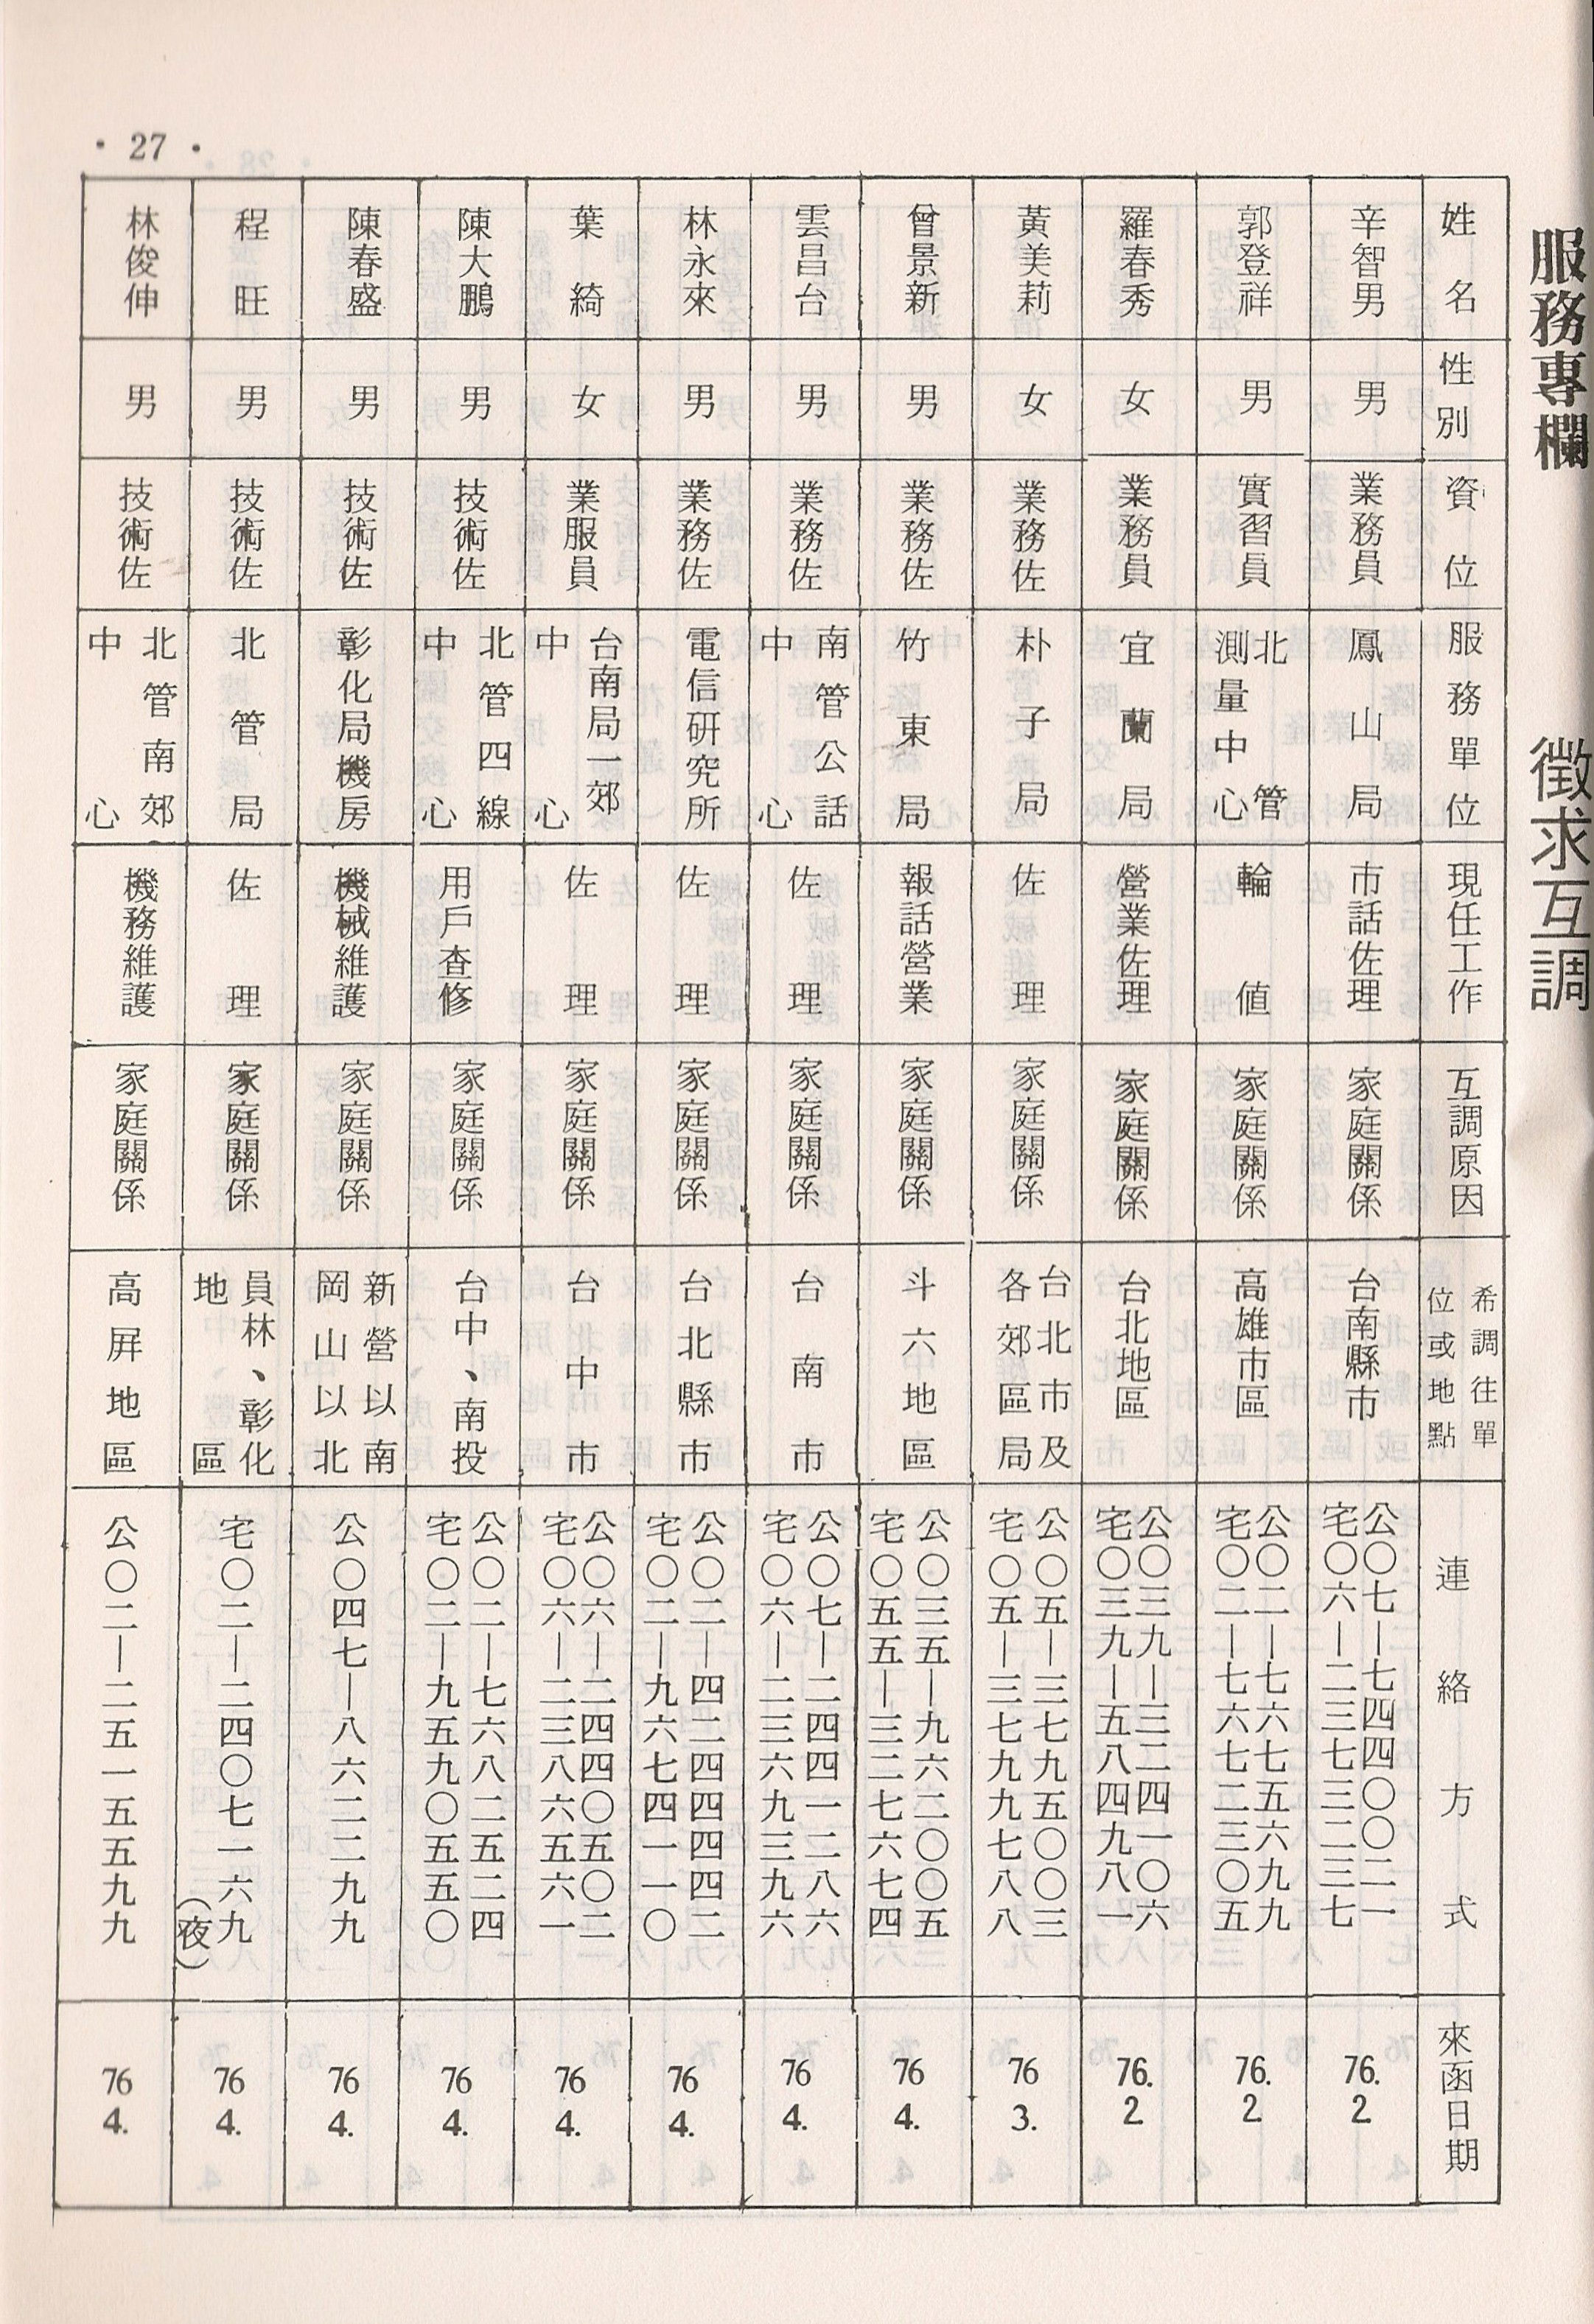 • 27 •
服務專欄　徵求互調
姓名　性別　資位　服務單位　現任工作　互調原因　希調往單位或地點　連絡方式　來函日期
辛智男　男　業務員　鳳山局　市話佐理　家庭關係　台南縣市　公〇七—七四四〇〇二一　宅〇六—二三七三二三七　76. 2
郭登祥　男　實習員　北管測量中心　輪值　家庭關係　高雄市區　公〇二—七六七五六九九　宅〇二—七六七二三〇五　76. 2
羅春秀　女　業務員　宜蘭局　營業佐理　家庭關係　台北地區　公〇三九—三二四一〇六　宅〇三九—五八四九八一　76. 2
黃美莉　女　業務佐　朴子局　佐理　家庭關係　台北市及各郊區局　公〇五—三七九五〇〇三　宅〇五—三七九九七八八　76 3.
曾景新　男　業務佐　竹東局　報話營業　家庭關係　斗六地區　公〇三五—九六二〇〇五　宅〇五五—三二七六七四　76 4.
雲昌台　男　業務佐　南管公話中心　佐理　家庭關係　台南市　公〇七—二四四一二八六　宅〇六—二三六九三九六　76 4.
林永來　男　業務佐　電信研究所　佐理　家庭關係　台北縣市　公〇二—四二四四四四二　宅〇二—九六七四一一〇　76 4.
葉綺　女　業服員　台南局一郊中心　佐理　家庭關係　台中市　公〇六—二四四〇五〇二　宅〇六—二三八六五六一　76 4.
陳大鵬　男　技術佐　北管四線中心　用戶查修　家庭關係　台中、南投　公〇二—七六八二五二四　宅〇二—九五九〇五五〇　76 4.
陳春盛　男　技術佐　彰化局機房　機械維護　家庭關係　新營以南岡山以北　公〇四七—八六二二九九　76 4.
程旺　男　技術佐　北管局　佐理　家庭關係　員林、彰化地區　宅〇二—二四〇七一六九（夜）　76 4.
林俊伸　男　技術佐　北管南郊中心　機務維護　家庭關係　高屏地區　公〇二—二五一五五九九　76 4.